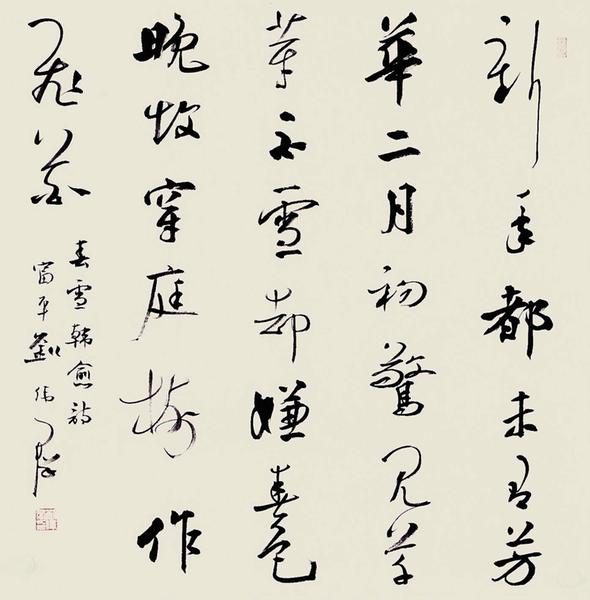 新年都未有芳
華二月初驚見草
芽白雪却嫌春色
晚故穿庭樹作
飛花
春雪韓愈詩
富平劉偉